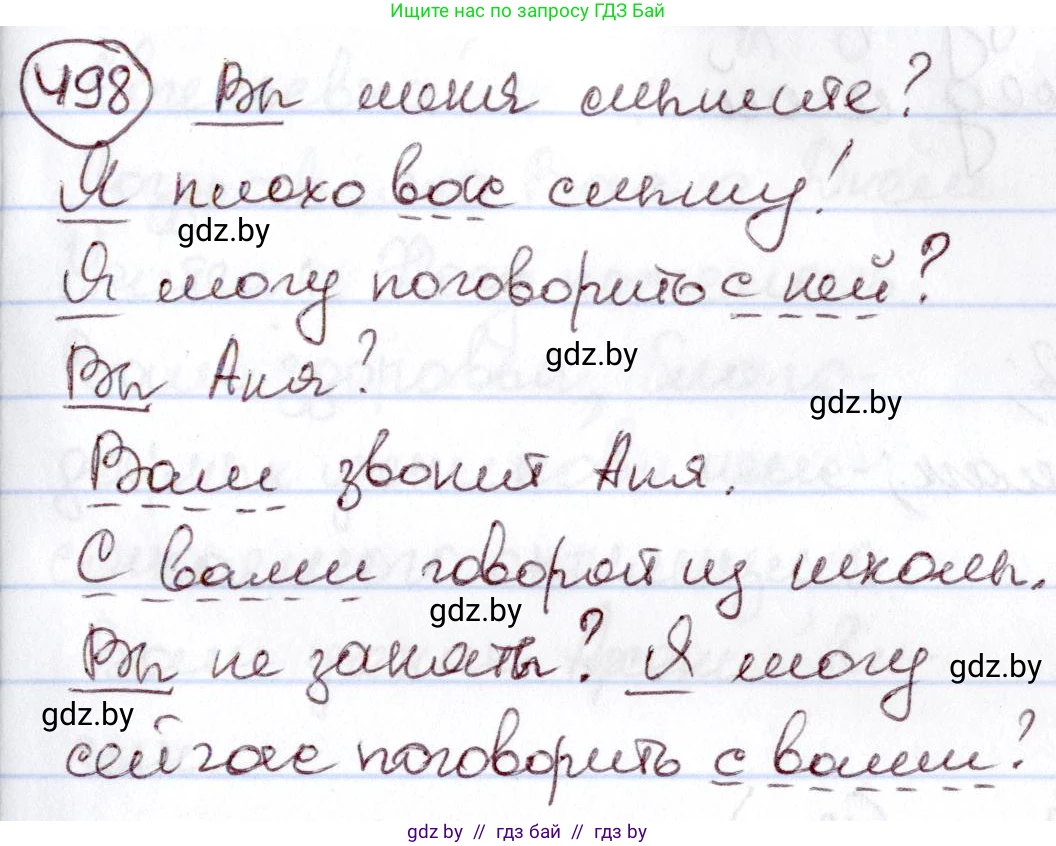 Ищите нас по запросу ГДЗ Бай
498 Вы меня слышите?
Я плохо вас слышу!
gdz.by
Я могу поговорить с ней?
gdz.by
Вы Аня?
gdz.by
Вам звонит Аня.
С вами говорят из школы.
gdz.by
Вы не заняты? Я могу
gdz.by
gdz.by
сейчас поговорить с вами?
gdz by // гдз бай // гдз by